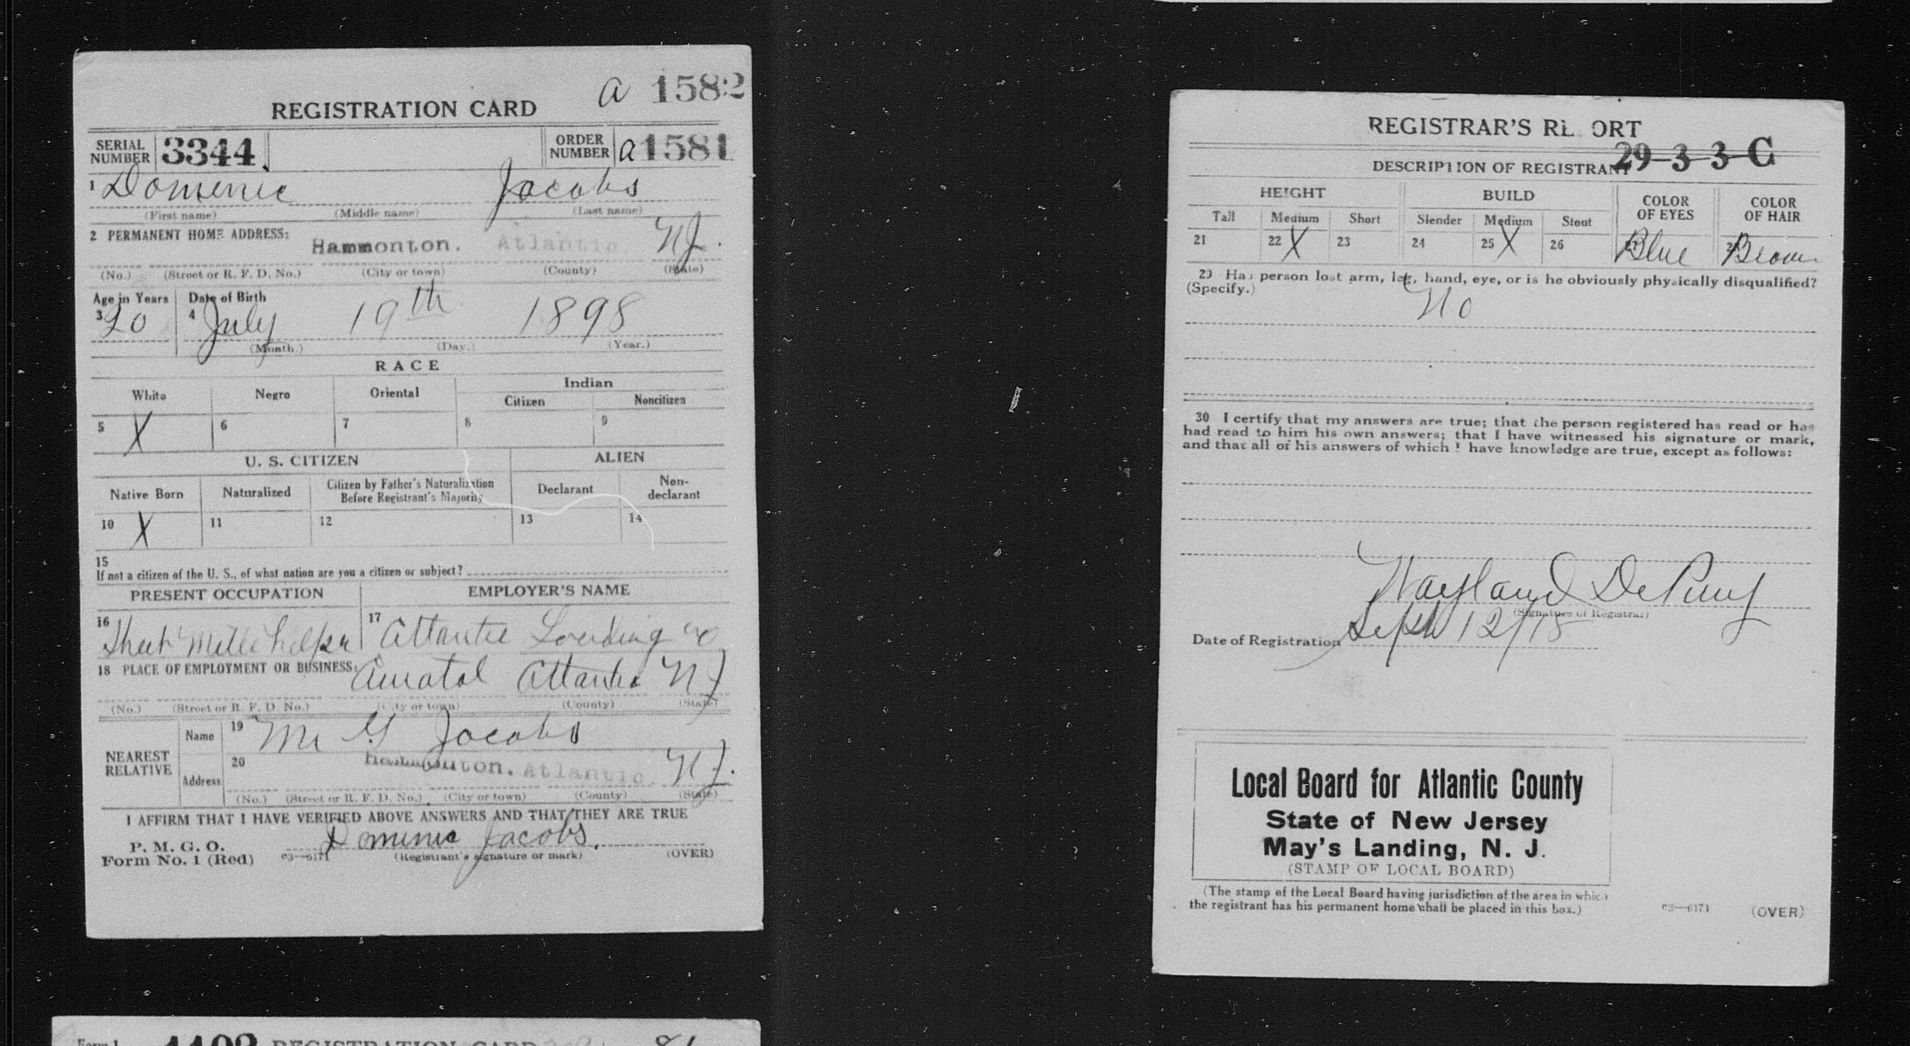 a 1582
REGISTRATION CARD
SERIAL NUMBER 3344 ORDER NUMBER a 1581
1 Domenic Jacobs
(First name) (Middle name) (Last name)
2 PERMANENT HOME ADDRESS:
Hammonton. Atlantic NJ.
(No.) (Street or R. F. D. No.) (City or town) (County) (State)
Age in Years Date of Birth
3 20 4 July 19th 1898
(Month.) (Day.) (Year.)
RACE
White Negro Oriental Indian
Citizen Noncitizen
5 X 6 7 8 9
U. S. CITIZEN ALIEN
Native Born Naturalized Citizen by Father's Naturalization Before Registrant's Majority Declarant Non-declarant
10 X 11 12 13 14
15
If not a citizen of the U. S., of what nation are you a citizen or subject?
PRESENT OCCUPATION EMPLOYER'S NAME
16 Sheet Mill helper 17 Atlantic Loading Co
18 PLACE OF EMPLOYMENT OR BUSINESS:
Amatol Atlantic NJ
(No.) (Street or R. F. D. No.) (City or town) (County) (State)
NEAREST RELATIVE
Name 19 Mr G Jacobs
Address 20 Hammonton. Atlantic. NJ.
(No.) (Street or R. F. D. No.) (City or town) (County) (State)
I AFFIRM THAT I HAVE VERIFIED ABOVE ANSWERS AND THAT THEY ARE TRUE
P. M. G. O.
Form No. 1 (Red) c3—6171 Dominic Jacobs.
(Registrant's signature or mark) (OVER)
Form 1 1102 REGISTRATION CARD
REGISTRAR'S RE ORT
29-3-3-C
DESCRIPTION OF REGISTRANT
HEIGHT BUILD COLOR OF EYES COLOR OF HAIR
Tall Medium Short Slender Medium Stout
21 22 X 23 24 25 X 26 Blue Brown
29 Has person lost arm, leg, hand, eye, or is he obviously physically disqualified?
(Specify.) No
30 I certify that my answers are true; that the person registered has read or has
had read to him his own answers; that I have witnessed his signature or mark,
and that all of his answers of which I have knowledge are true, except as follows:
Wayland DePuy
(Signature of Registrar)
Date of Registration Sept 12/18
Local Board for Atlantic County
State of New Jersey
May's Landing, N. J.
(STAMP OF LOCAL BOARD)
(The stamp of the Local Board having jurisdiction of the area in which
the registrant has his permanent home shall be placed in this box.)
c3—6171 (OVER)